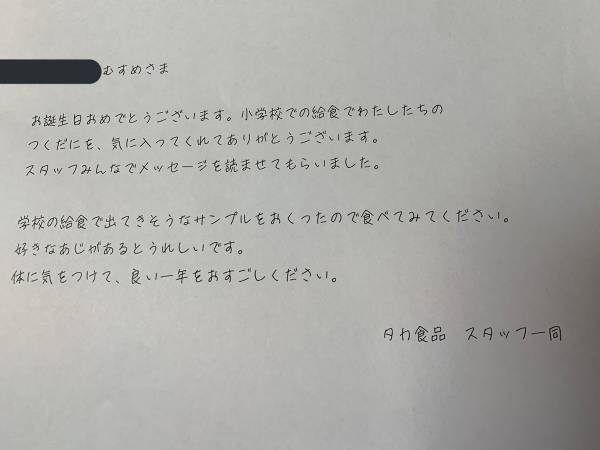 むすめさま
お誕生日おめでとうございます。小学校での給食でわたしたちの
つくだにを、気に入ってくれてありがとうございます。
スタッフみんなでメッセージを読ませてもらいました。
学校の給食で出てきそうなサンプルをおくったので食べてみてください。
好きなあじがあるとうれしいです。
体に気をつけて、良い一年をおすごしください。
タカ食品　スタッフ一同